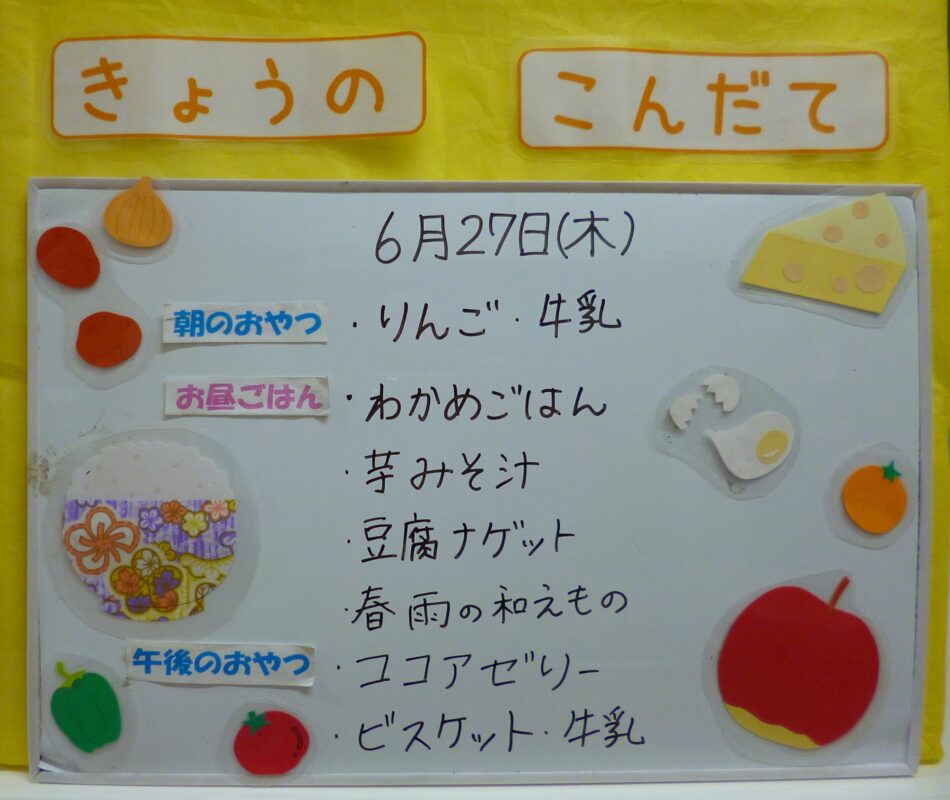 きょうの こんだて
6月27日(木)
朝のおやつ ・りんご・牛乳
お昼ごはん ・わかめごはん
・芋みそ汁
・豆腐ナゲット
・春雨の和えもの
午後のおやつ ・ココアゼリー
・ビスケット・牛乳